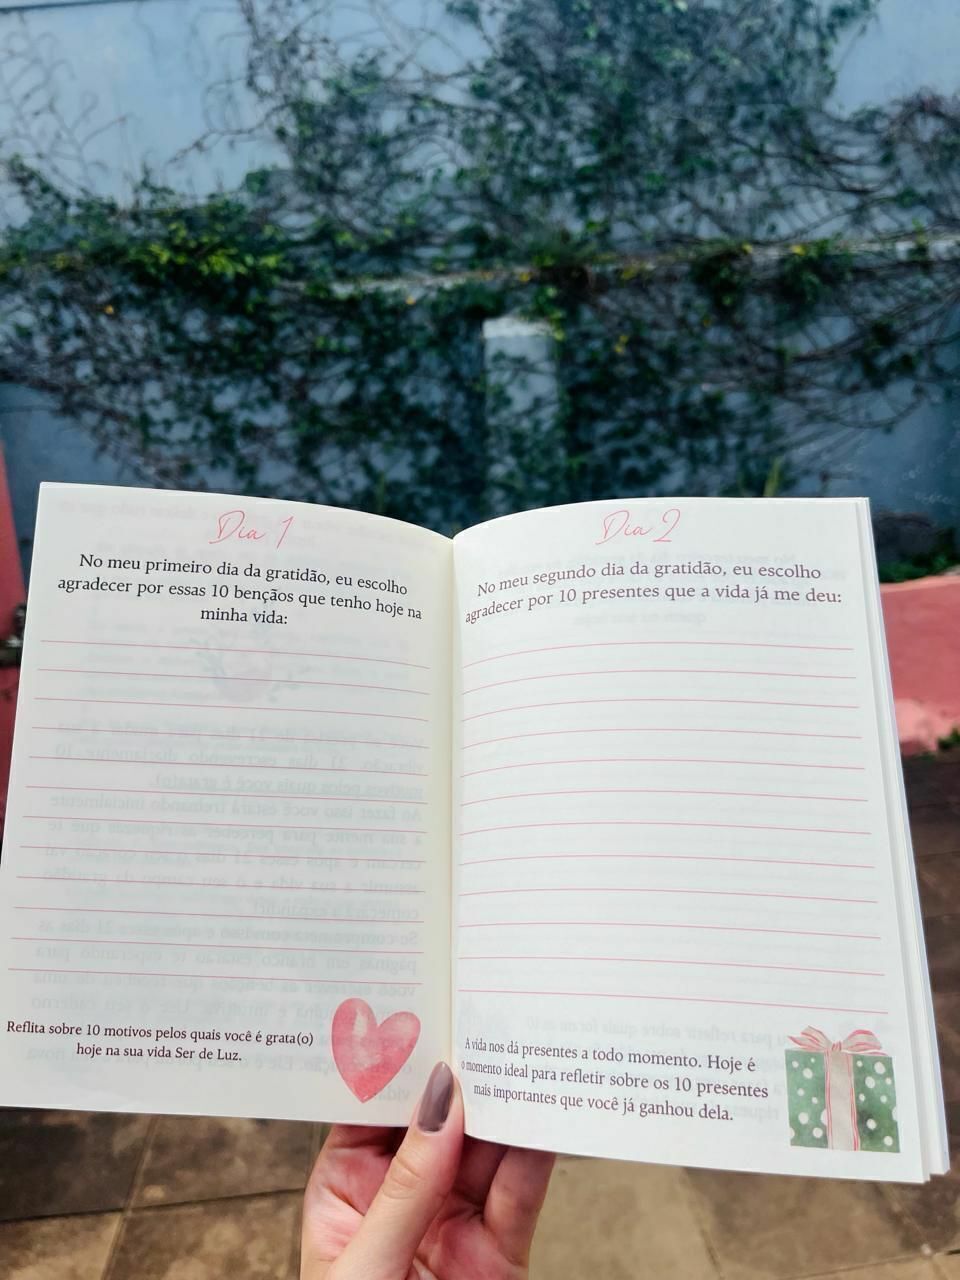 Dia 1
No meu primeiro dia da gratidão, eu escolho
agradecer por essas 10 bençãos que tenho hoje na
minha vida:
Reflita sobre 10 motivos pelos quais você é grata(o)
hoje na sua vida Ser de Luz.
Dia 2
No meu segundo dia da gratidão, eu escolho
agradecer por 10 presentes que a vida já me deu:
A vida nos dá presentes a todo momento. Hoje é
o momento ideal para refletir sobre os 10 presentes
mais importantes que você já ganhou dela.